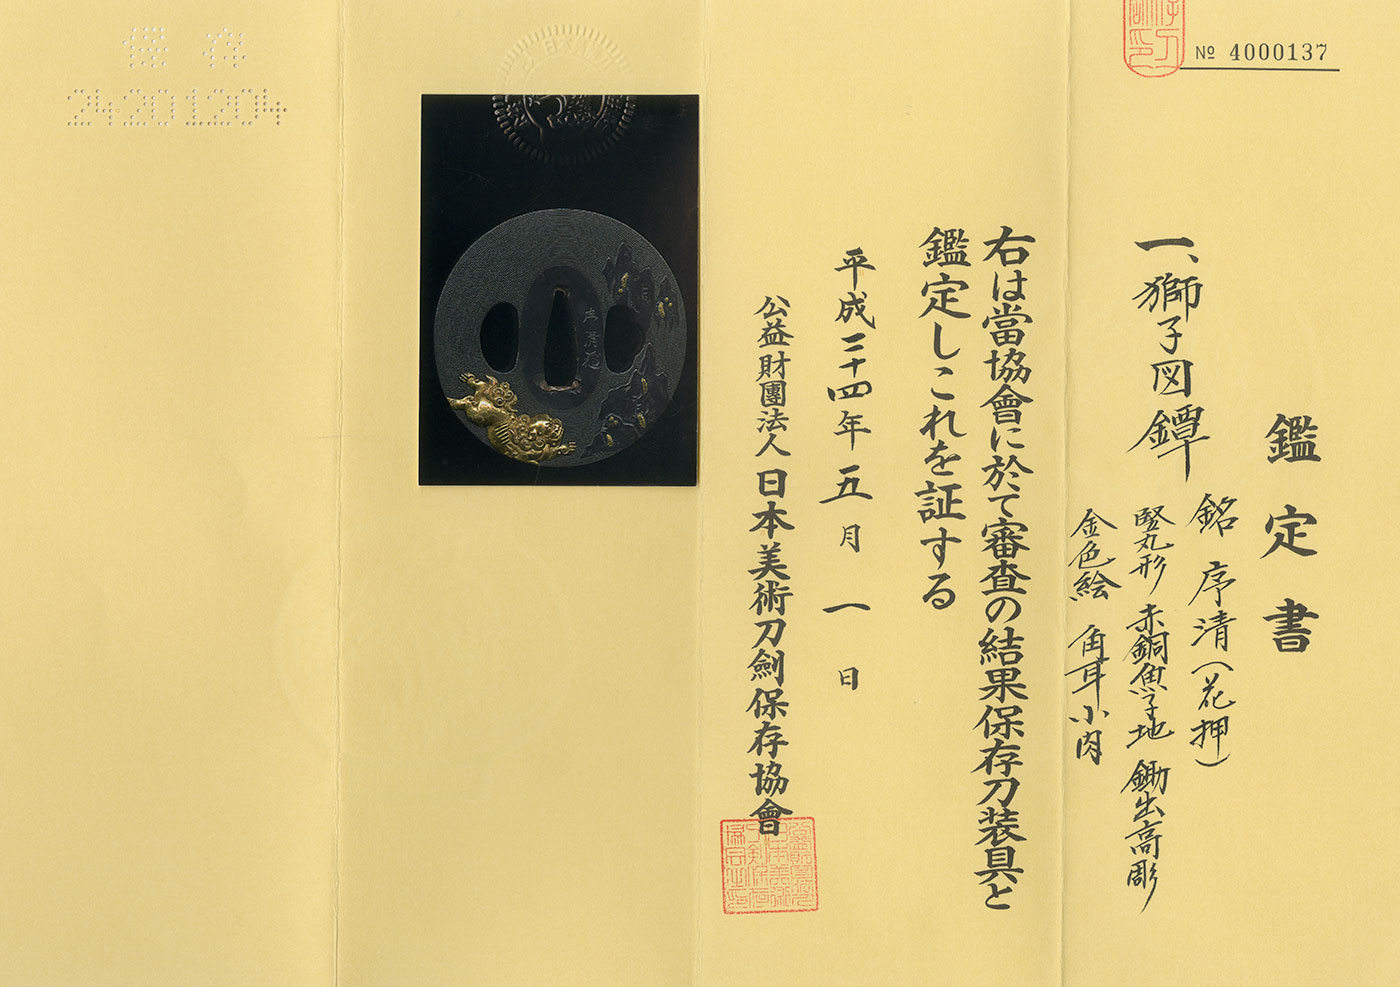 № 4000137
鑑定書
一、獅子図鐔
銘 序清(花押)
竪丸形 赤銅魚子地 鋤出高彫
金色絵 角耳小肉
右は當協會に於て審査の結果保存刀装具と
鑑定しこれを証する
平成二十四年五月一日
公益財團法人 日本美術刀劍保存協會
保存
24201204
序清